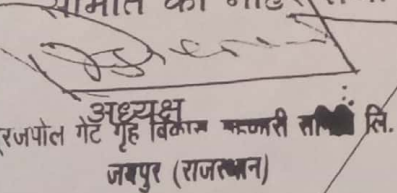 समिति की मोहर
अध्यक्ष
रजपोल गेट गृह विकास सहकारी समिति लि.
जयपुर (राजस्थान)